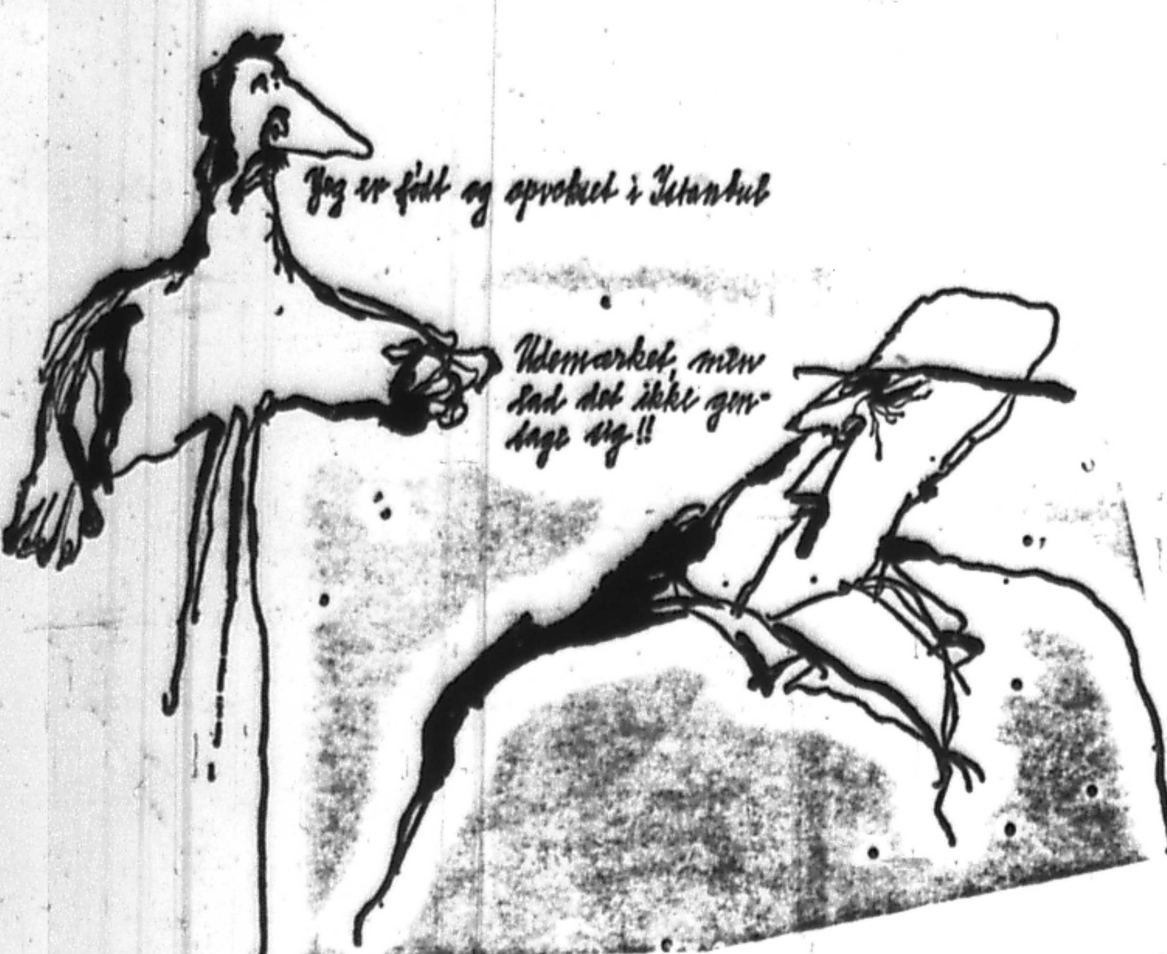 Jeg er født og opvokset i Istanbul
Udemærket, men
lad det ikke gen-
tage sig!!